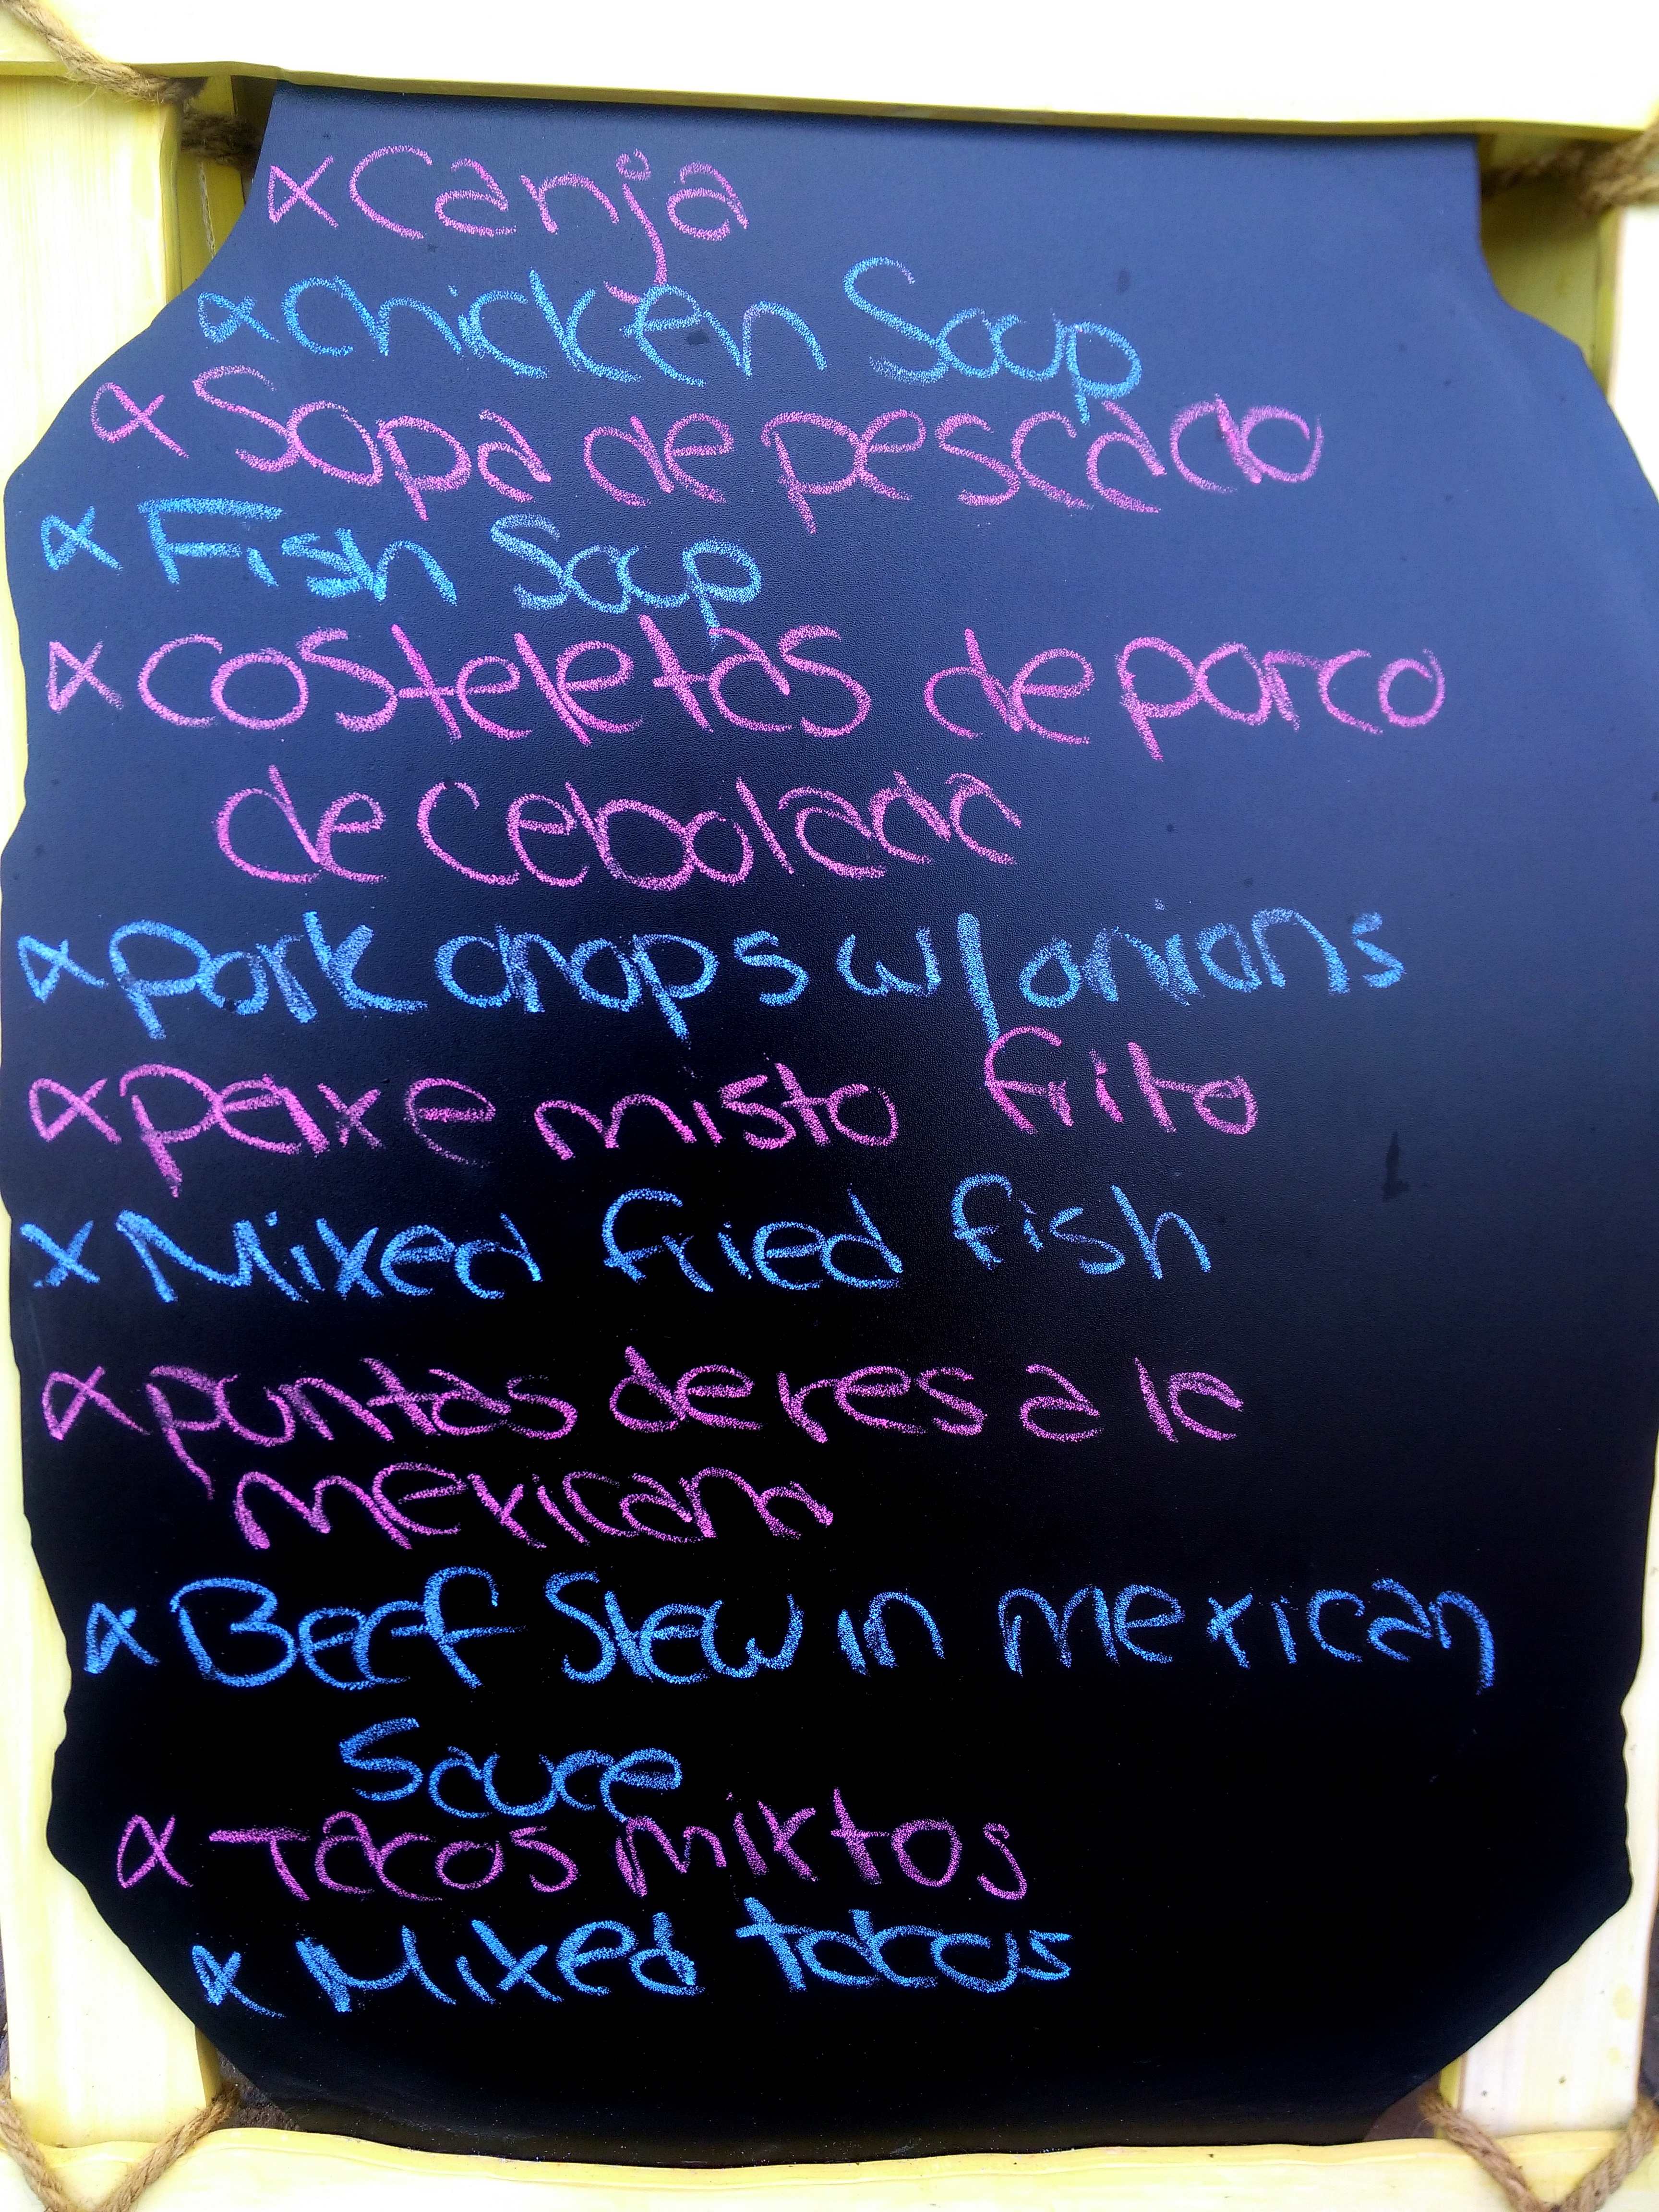 x Canja
x chicken Soup
x Sopa de pescado
x Fish Soup
x costeletas de porco
de cebolada
x pork chops w/onions
x peixe misto frito
x Mixed fried fish
x puntas de res a le
mexicana
x Beef Stew in mexican
Sauce
x Tacos mixtos
x Mixed tacos